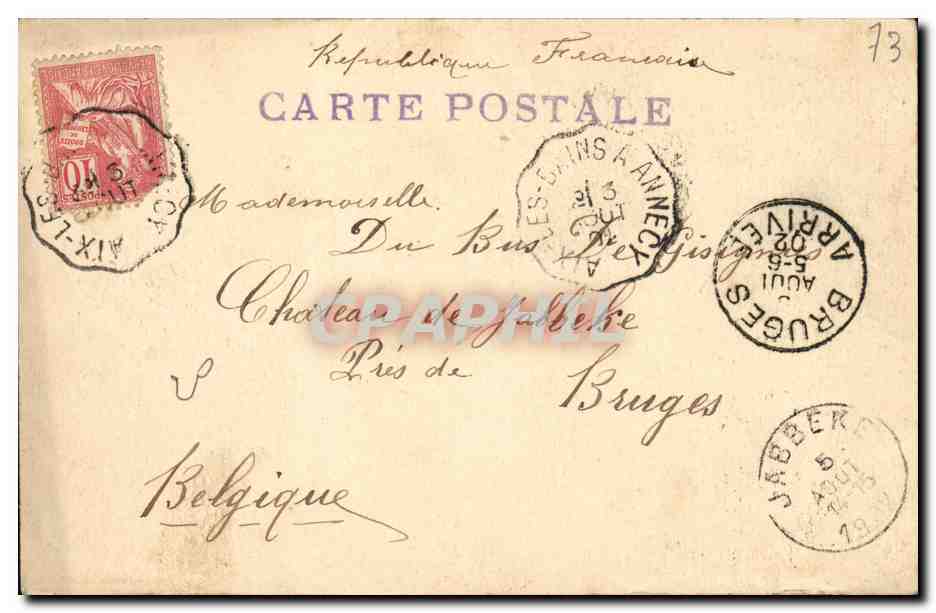 73
Republique Francaise
CARTE POSTALE
10
AIX-LES-BAINS A ANNECY
3
AOUT
02
Mademoiselle
Du Bus De Gisignies
Château de Jabbeke
Près de
Bruges
Belgique
BRUGES
AOUT
5-6
02
ARRIVEE
JABBEKE
5
AOUT
14-15
19
CPAPHIL